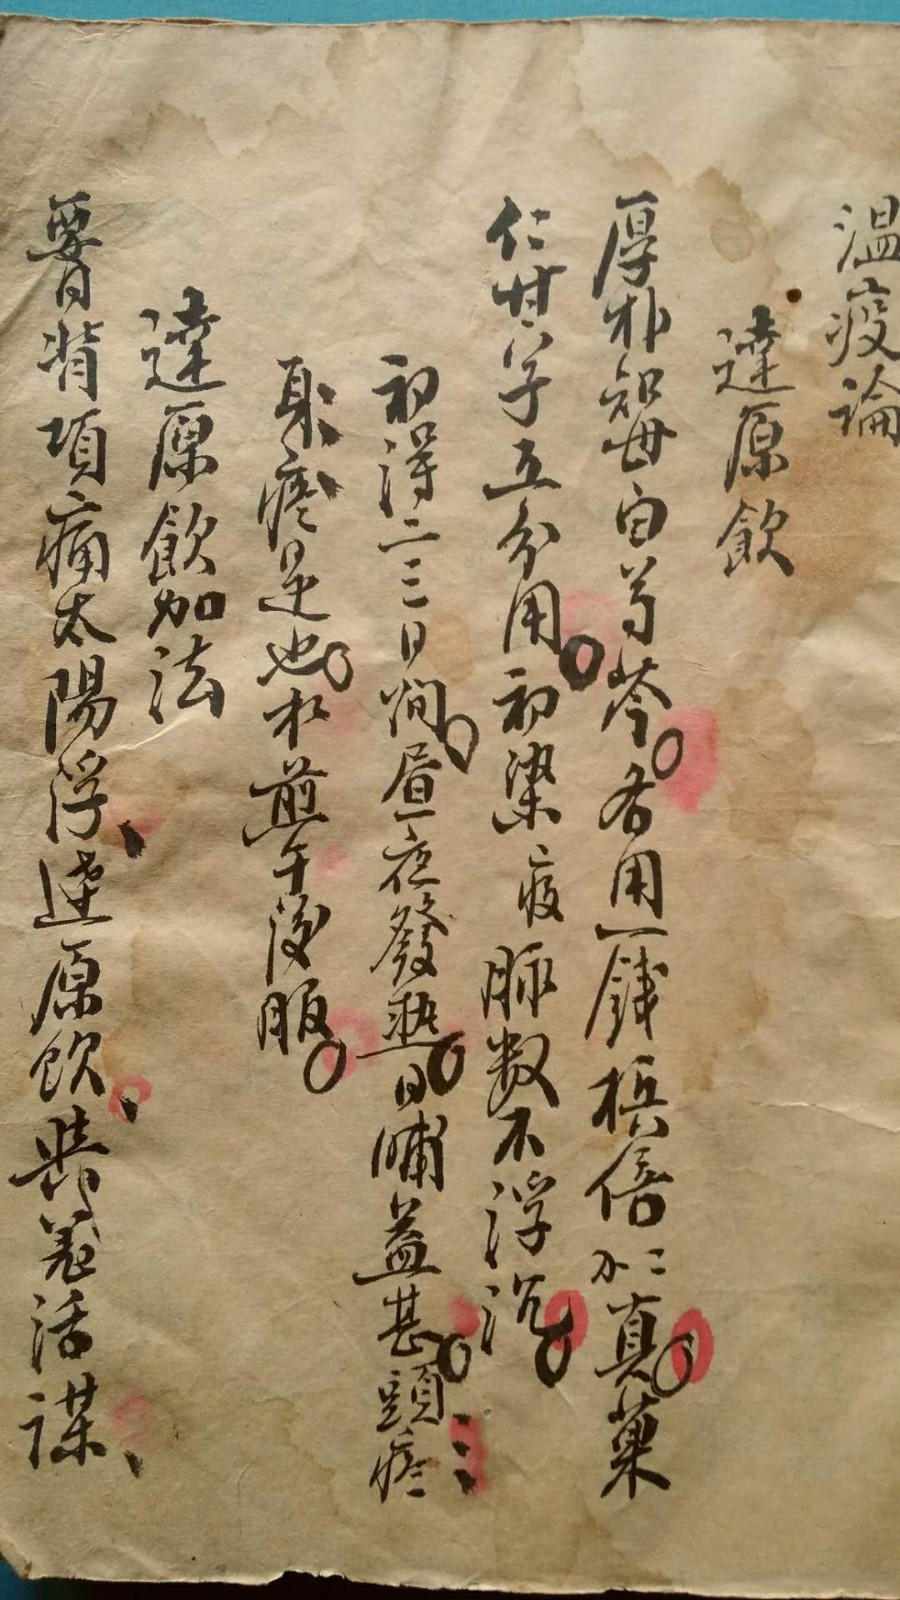 温疫論
達原飲
厚朴知母白芍芩各用一錢槟倍加二真菓
仁甘草五分用初染疫脉数不浮沉
初得二三日间昼夜發热日晡益甚頭疼
身疼是也水煎午後服
達原飲加法
要背項痛太陽浮達原飲裝羌活謀